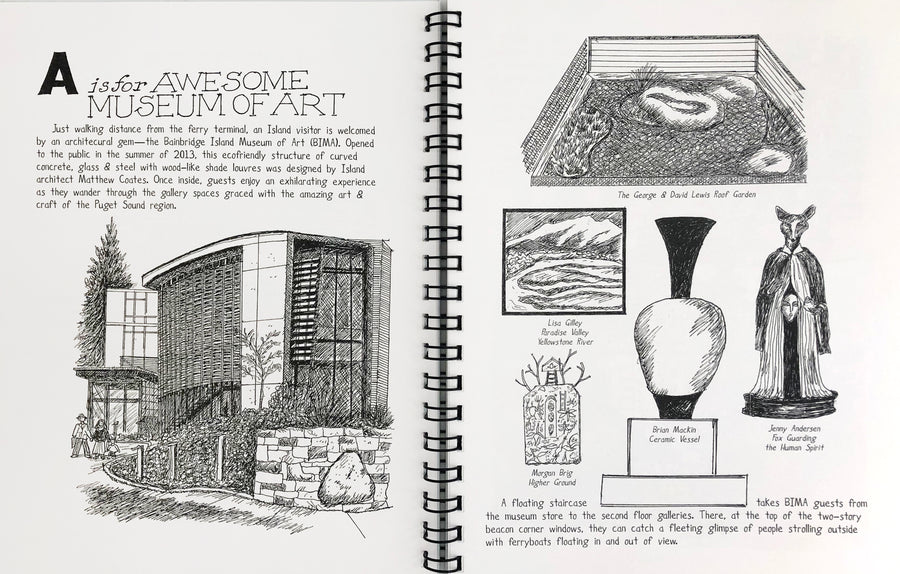 A is for AWESOME
MUSEUM OF ART
Just walking distance from the ferry terminal, an Island visitor is welcomed
by an architecural gem—the Bainbridge Island Museum of Art (BIMA). Opened
to the public in the summer of 2013, this ecofriendly structure of curved
concrete, glass & steel with wood-like shade louvres was designed by Island
architect Matthew Coates. Once inside, guests enjoy an exhilarating experience
as they wander through the gallery spaces graced with the amazing art &
craft of the Puget Sound region.
The George & David Lewis Roof Garden
Lisa Gilley
Paradise Valley
Yellowstone River
Morgan Brig
Higher Ground
Brian Mackin
Ceramic Vessel
Jenny Andersen
Fox Guarding
the Human Spirit
A floating staircase takes BIMA guests from
the museum store to the second floor galleries. There, at the top of the two-story
beacon corner windows, they can catch a fleeting glimpse of people strolling outside
with ferryboats floating in and out of view.